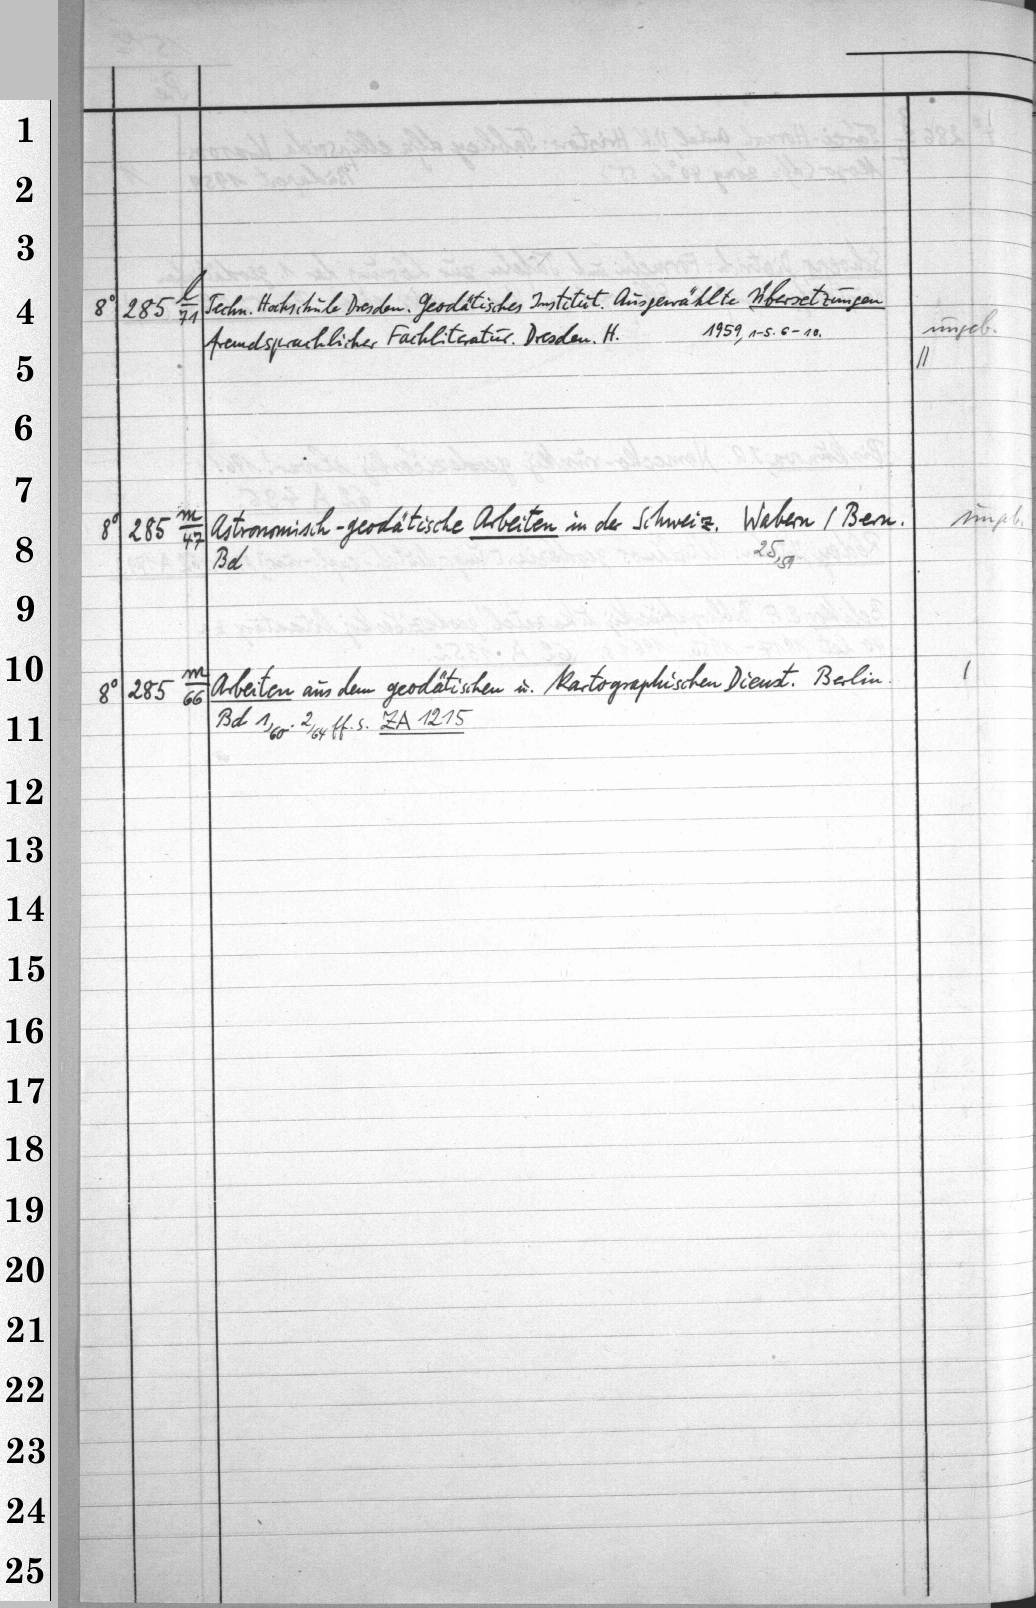 1
2
3
4
8° 285 l/71 Techn. Hochschule Dresden. Geodätisches Institut. Ausgewählte Übersetzungen
fremdsprachlicher Fachliteratur. Dresden. H. 1959, 1-5. 6-10. ungeb.
5
||
6
7
8° 285 m/47 Astronomisch-geodätische Arbeiten in der Schweiz. Wabern / Bern. ungeb.
8
Bd 25,59
9
10
8° 285 m/66 Arbeiten aus dem geodätischen u. Kartographischen Dienst. Berlin. |
11
Bd 1,60. 2,64 ff. s. ZA 1215
12
13
14
15
16
17
18
19
20
21
22
23
24
25